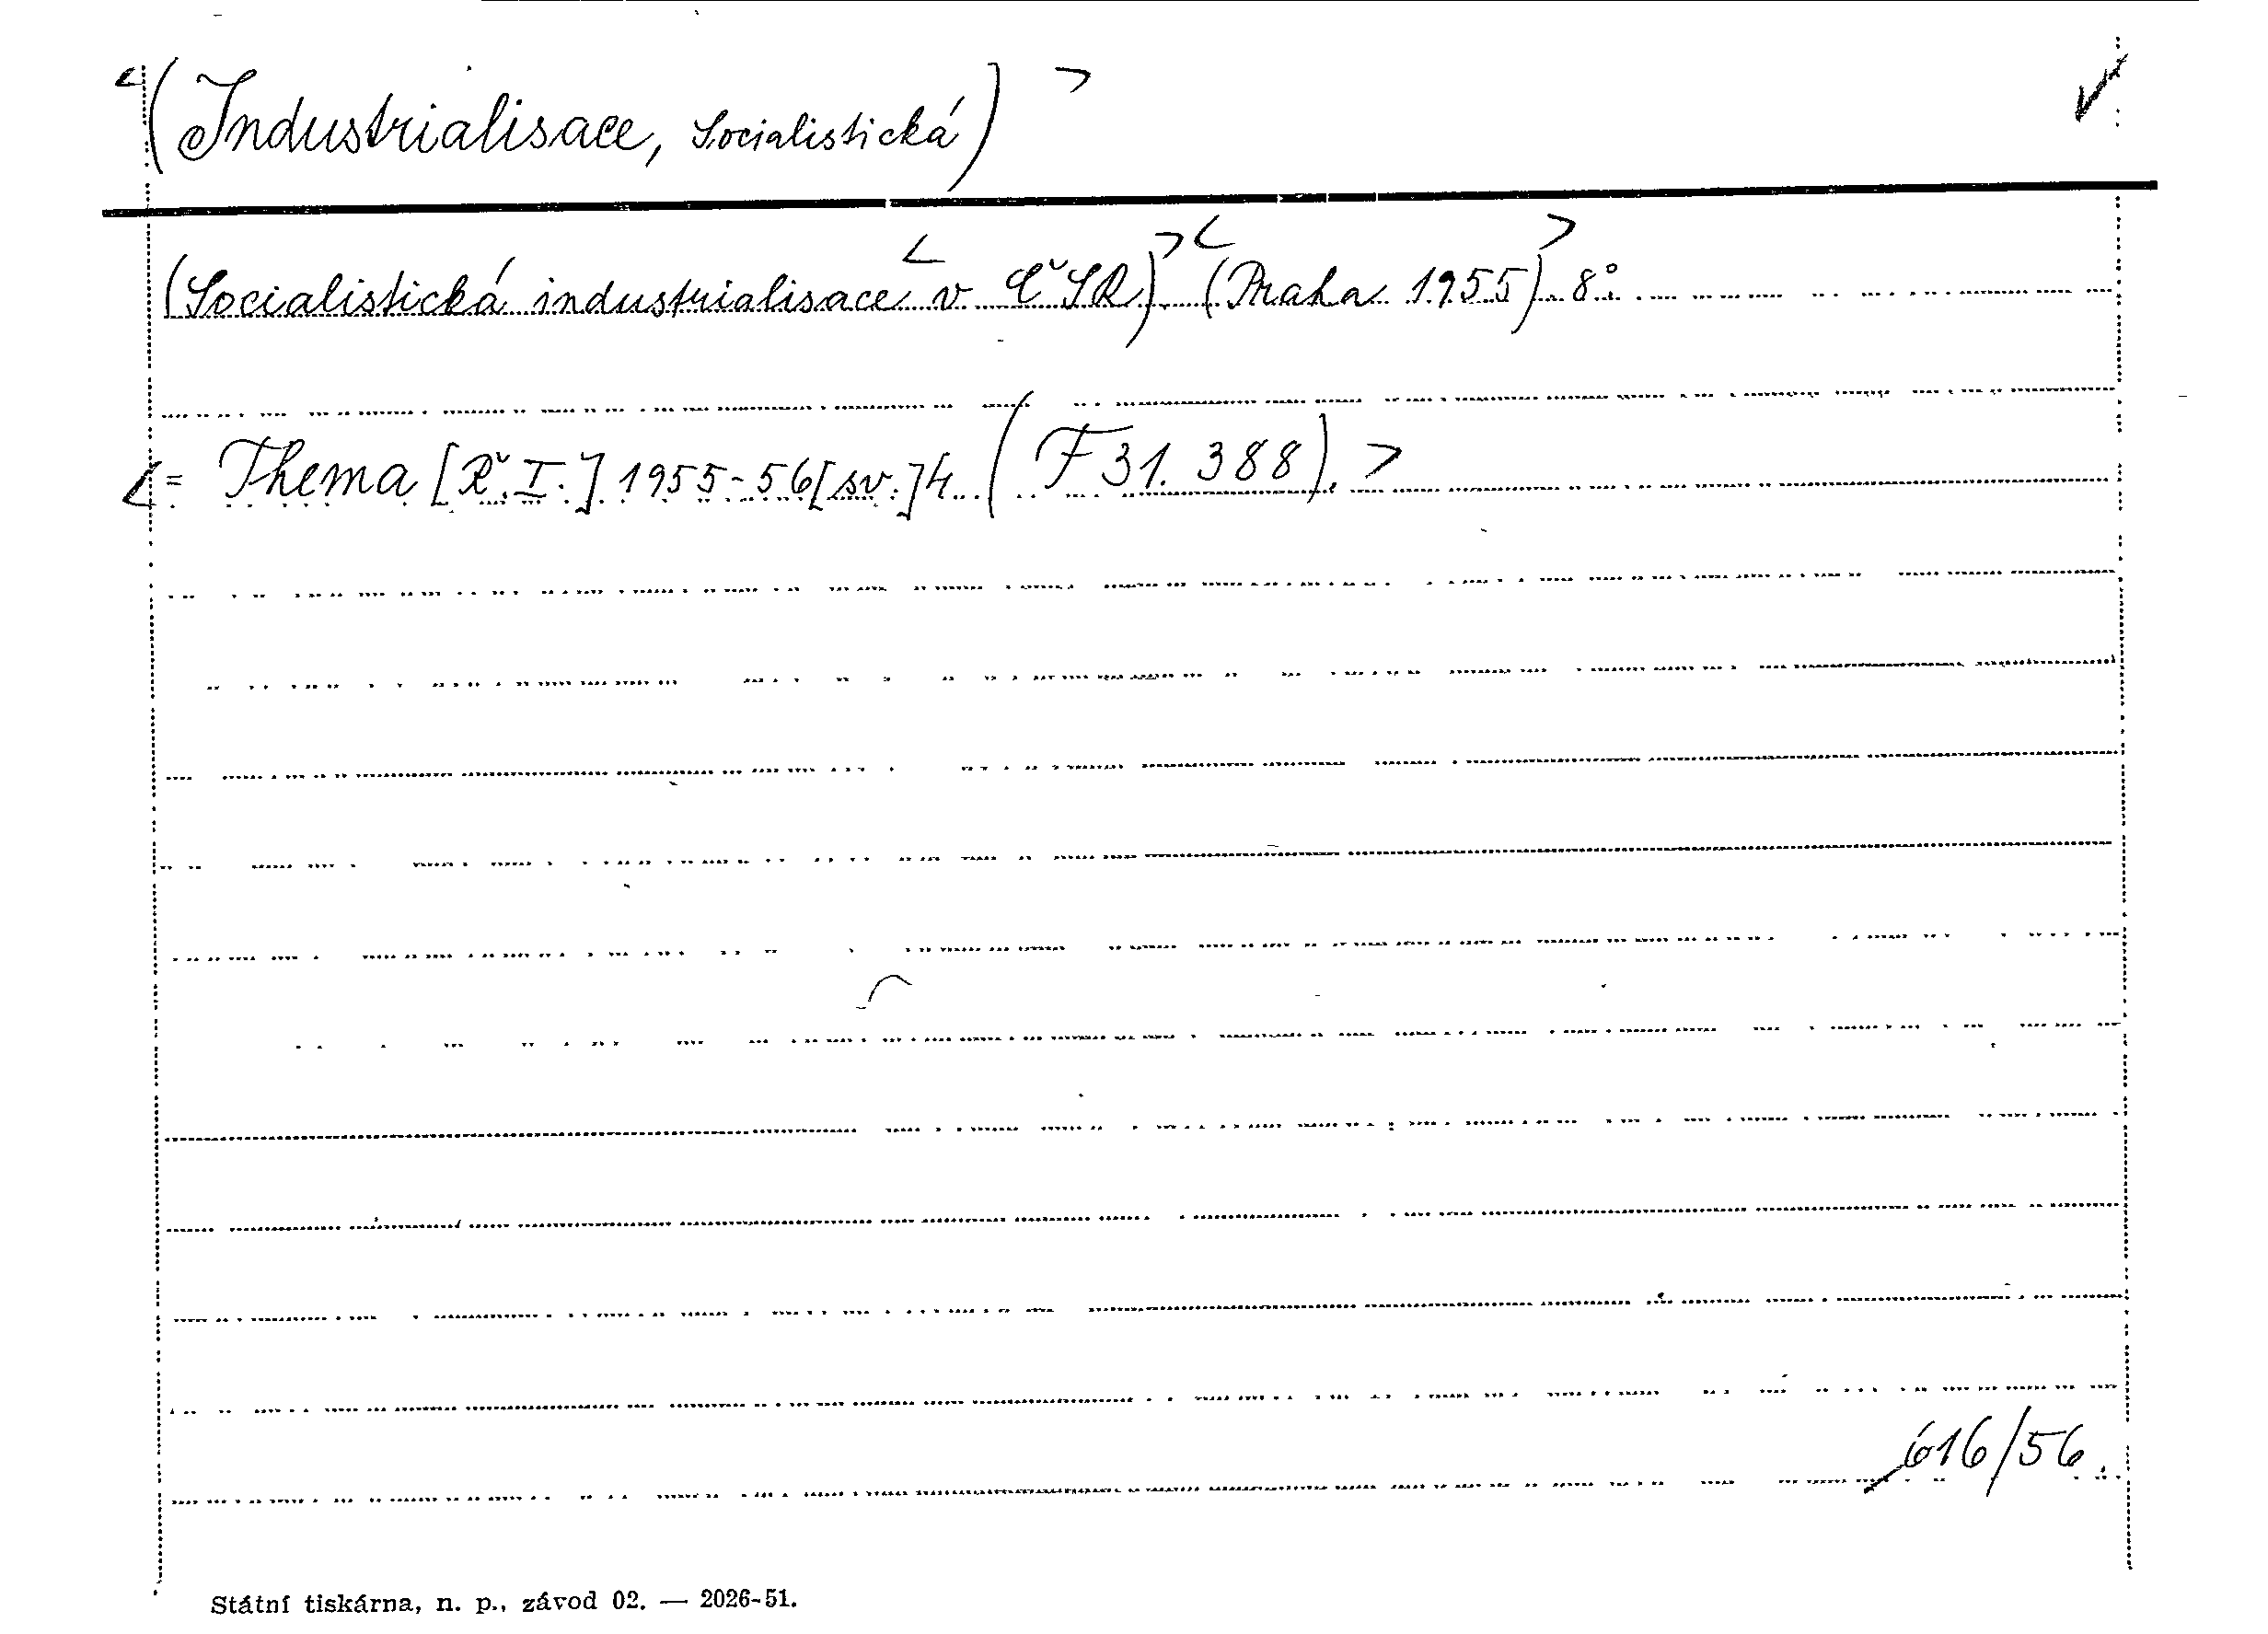 <(Industrialisace, Socialistická)> ✓
(Socialistická industrialisace < v ČSR)> <(Praha 1955)>. 8°.
<= Thema [Ř. I.] 1955-56 [sv.] 4. (F 31. 388).>
616/56.
Státní tiskárna, n. p., závod 02. — 2026-51.